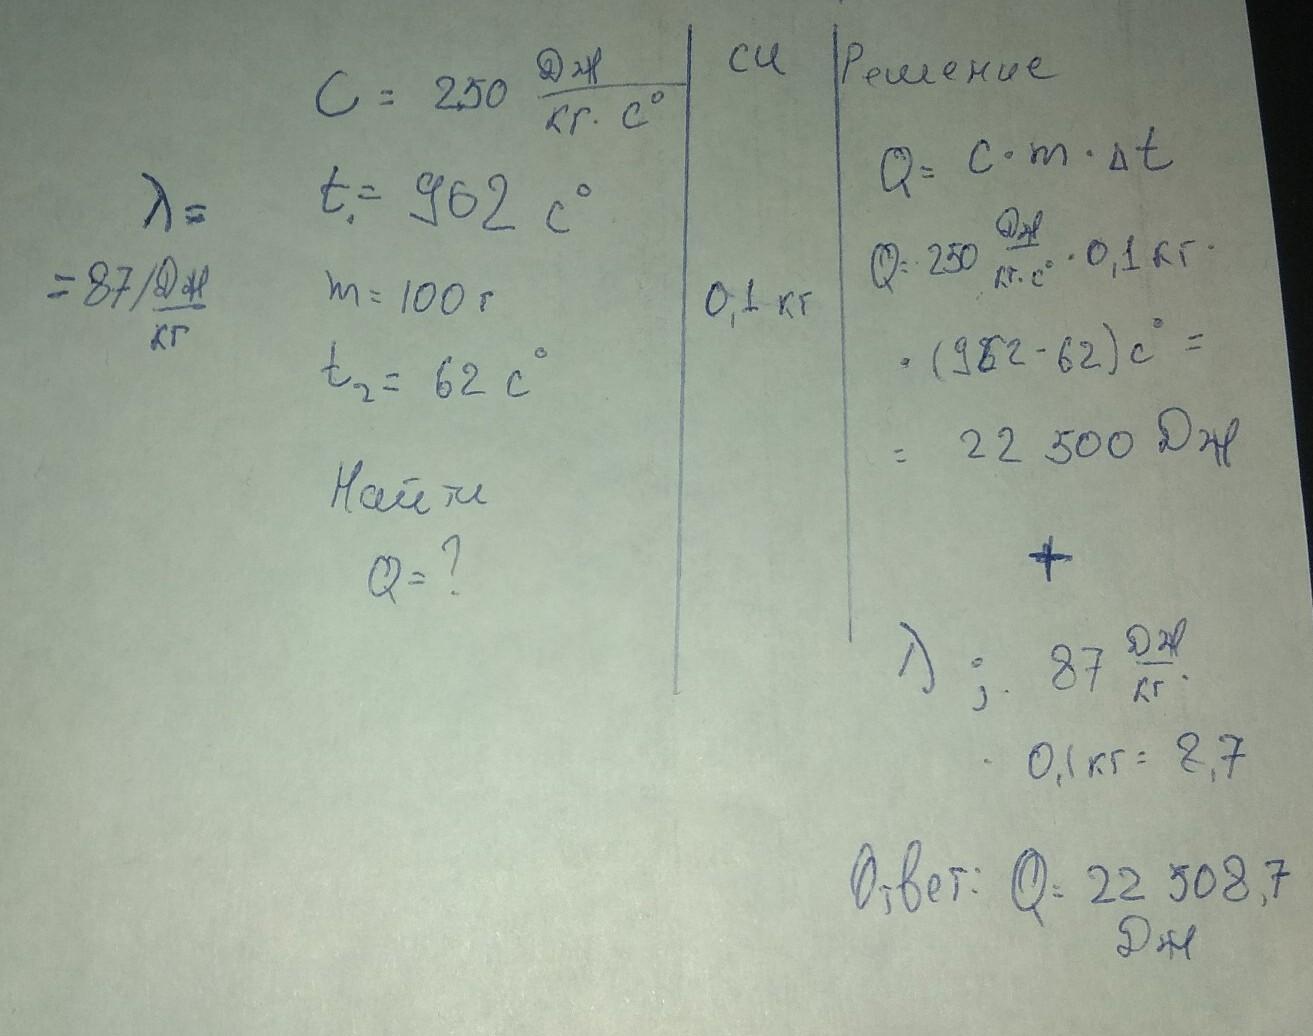 C = 250 Дж/кг·C°
λ =
= 87 Дж/кг
t₁ = 962 C°
m = 100 г
t₂ = 62 C°
Найти
Q = ?
СИ
0,1 кг
Решение
Q = C · m · Δt
Q = 250 Дж/кг·C° · 0,1 кг ·
· (962 - 62) C° =
= 22 500 Дж
+
λ ; 87 Дж/кг ·
· 0,1 кг = 8,7
Ответ: Q = 22 508,7
Дж